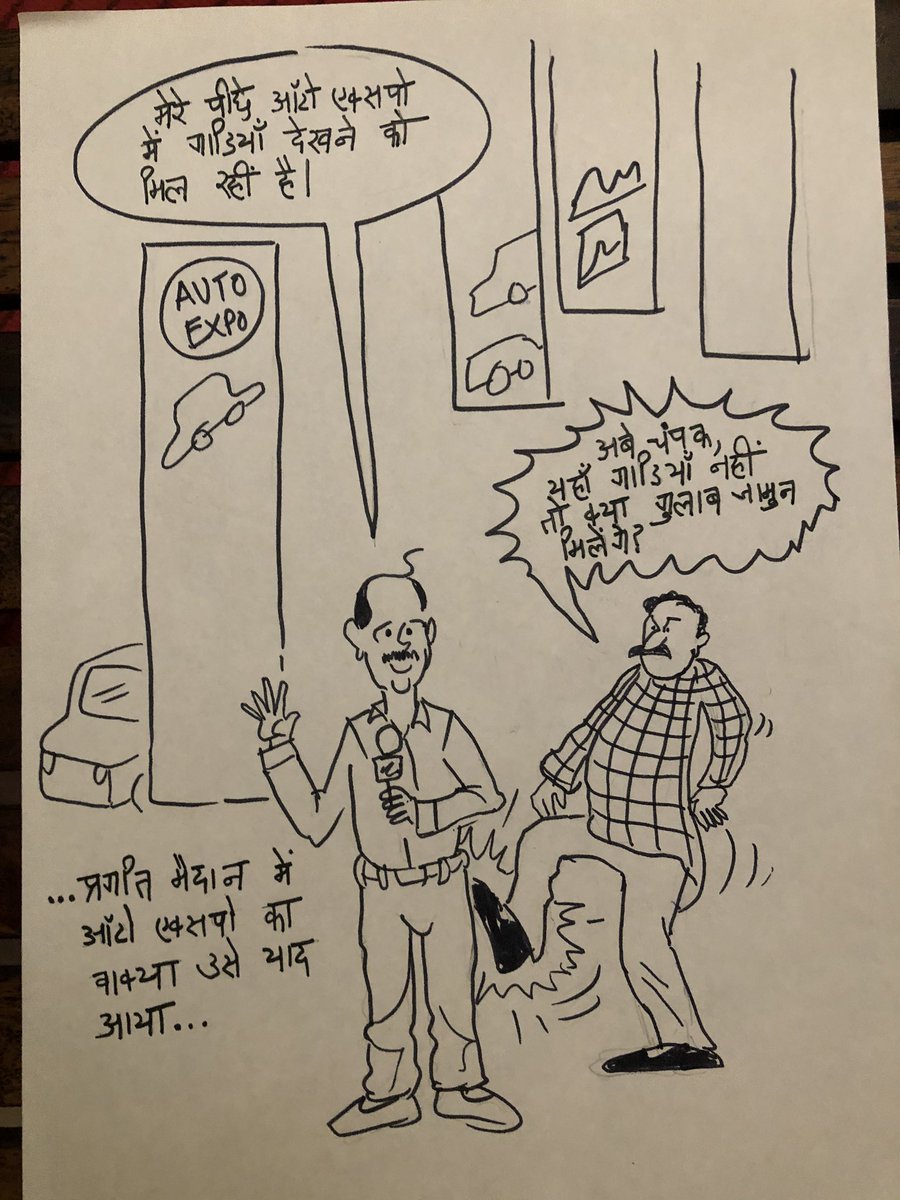 मेरे पीछे ऑटो एक्सपो
में गाडियाँ देखने को
मिल रहीं है।
AUTO
EXPO
अबे चंपक,
यहाँ गाडियाँ नहीं
तो क्या गुलाब जामुन
मिलेंगे?
...प्रगति मैदान में
ऑटो एक्सपो का
वाक्या उसे याद
आया...